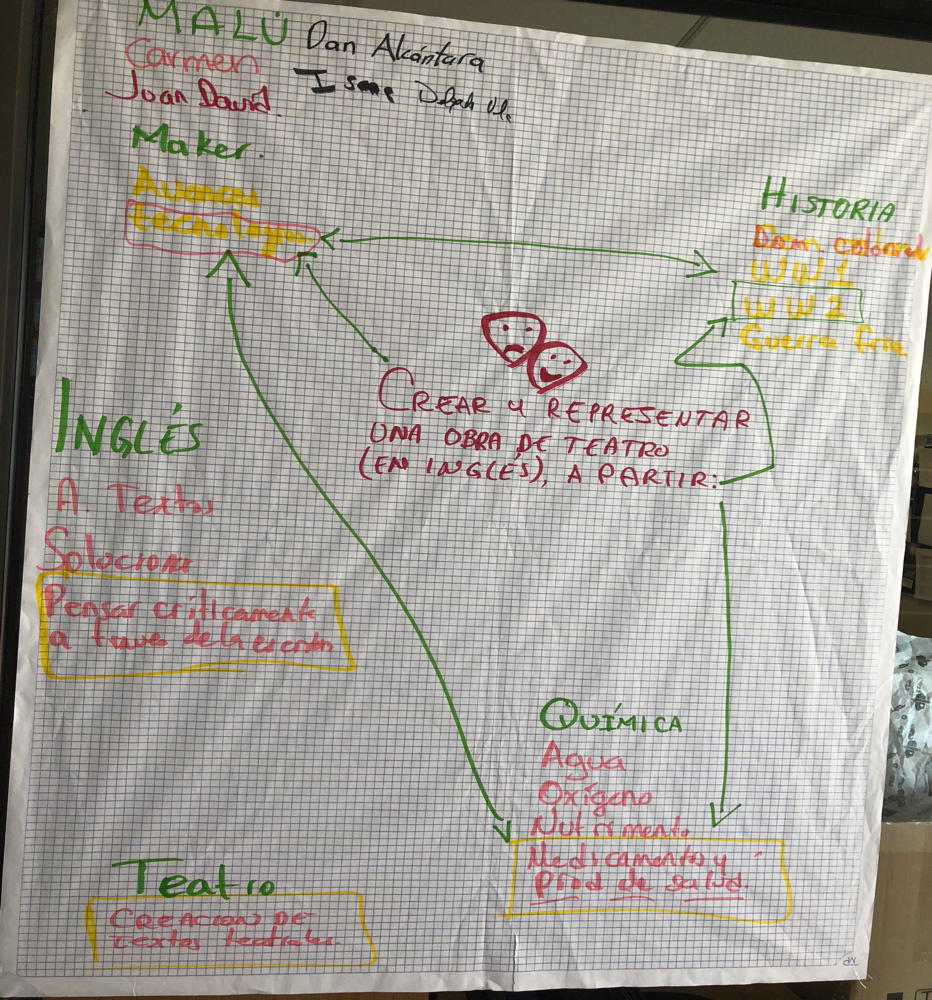 MALÚ Dan Alcántara
Carmen
Joan David.
Maker.
Avances
tecnologic
HISTORIA
Dom colonial
WW1
WW2
Guerra fria
CREAR y REPRESENTAR
UNA OBRA DE TEATRO
(EN INGLÉS), A PARTIR:
INGLÉS
A. Textos
Solucionar
Pensar críticamente
a traves de la escritura
QUÍMICA
Agua
Oxígeno
Nutrimento
Medicamento y
prod de salud.
Teatro
CREACION DE
textos teatrales.